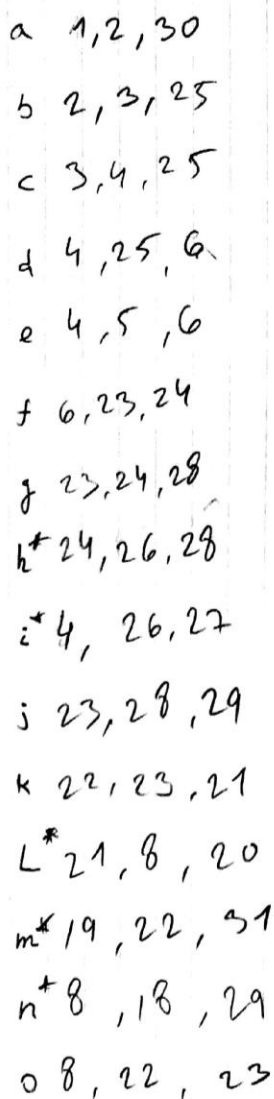 a 1,2,30
b 2,3,25
c 3,4,25
d 4,25,6
e 4,5,6
f 6,23,24
g 23,24,28
h* 24,26,28
i* 4, 26,27
j 23,28,29
k 22,23,21
L* 21,8,20
m* 19,22,31
n* 8,18,29
o 8,22,23